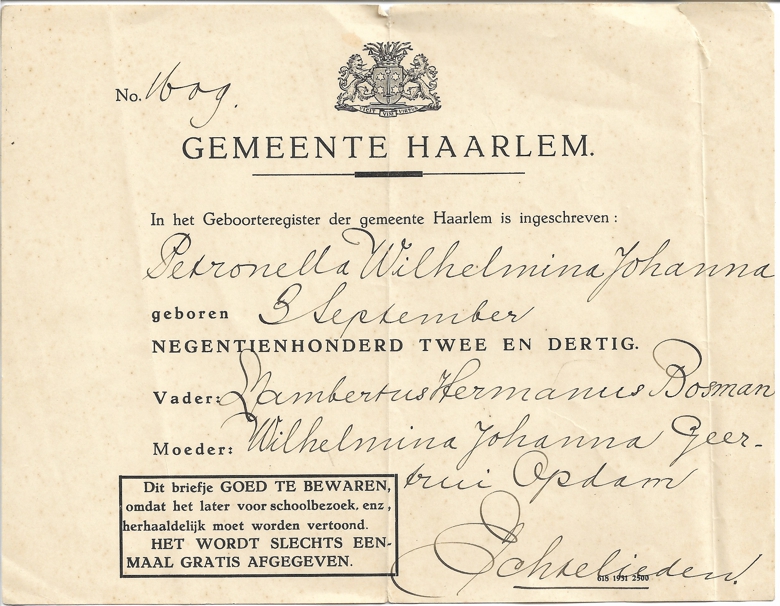 No. 1609.
VICIT VIM VIRTUS
GEMEENTE HAARLEM.
In het Geboorteregister der gemeente Haarlem is ingeschreven:
Petronella Wilhelmina Johanna
geboren 3 September
NEGENTIENHONDERD TWEE EN DERTIG.
Vader: Lambertus Hermanus Bosman
Moeder: Wilhelmina Johanna Geer-
trui Opdam
Echtelieden.
Dit briefje GOED TE BEWAREN,
omdat het later voor schoolbezoek, enz,
herhaaldelijk moet worden vertoond.
HET WORDT SLECHTS EEN-
MAAL GRATIS AFGEGEVEN.
618 1931 2500